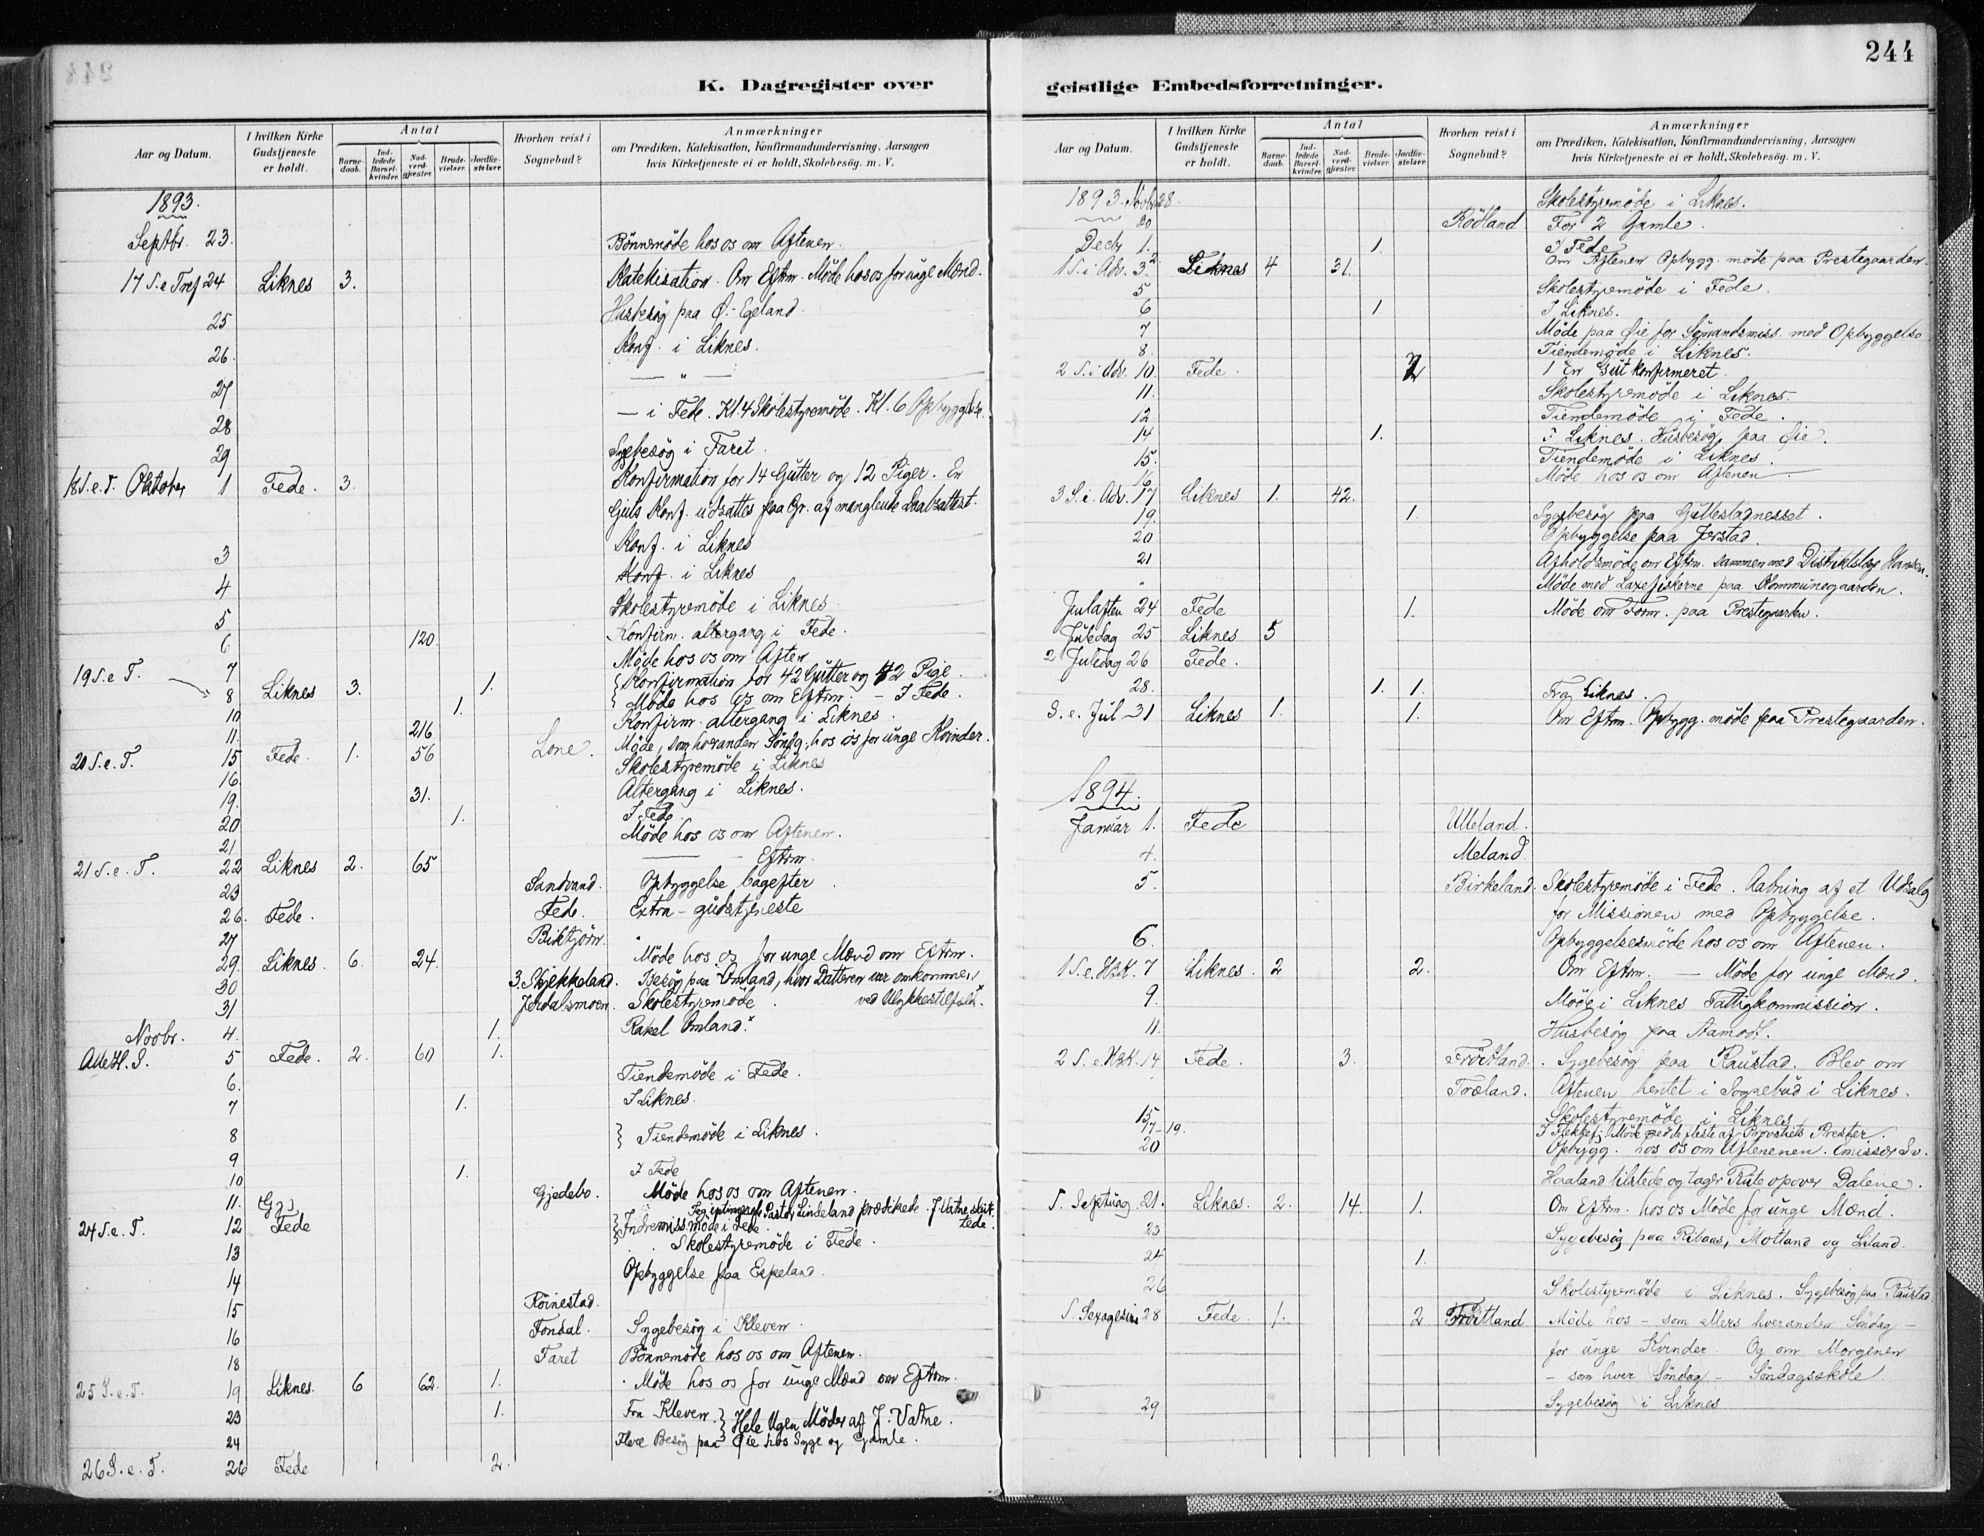 244
K. Dagregister over
geistlige Embedsforretninger.
Aar og Datum.
I hvilken Kirke Gudstjeneste er holdt.
Antal
Barnedaab.
Indledede Barselkvinder.
Nadverdgjæster.
Brudevielser.
Jordfæstelser.
Hvorhen reist i Sognebud?
Anmærkninger
om Prædiken, Katekisation, Konfirmandundervisning, Aarsagen
hvis Kirketjeneste ei er holdt, Skolebesøg. m. V.
1893.
Septbr. 23. Bönnemöde hos os om Aftenen.
17 S. e Tref 24 Liknes 3. Katekisation. Om Eftm. Möde hos os for unge Mænd.
25 Husbesög paa Ö.-Egeland.
26. Konf. i Liknes.
27 — " —
28 — i Fede. Kl. 4 Skolestyremöde. Kl. 6 Opbyggelse.
29 Sygebesög i Faret.
18 S. e. T. Oktober 1 Fede. 3. Konfirmation for 14 Gutter og 12 Piger. En
Guts Konf. udsattes paa Gr. af manglende Daabsattest.
3 Konf. i Liknes
4 Konf. i Liknes
5 Skolestyremöde i Liknes
6 120. Konfirm. altergang i Fede.
7 Möde hos os om Aften
19 S. e T. 8 Liknes 3. 1. Konfirmation for 42 Gutter og 42 Pige.
Möde hos os om Eftm. - I Fede.
10 1.
11. 216 Konfirm. altergang i Liknes.
20 S. e. T. 15 Fede. 1. 56 Lone. Möde, som hveranden Söndg., hos os for unge Kvinder.
16. Skolestyremöde i Liknes
19. 31. Altergang i Liknes.
20 1. I Fede
21 Möde hos os om Aftenen.
21 S. e. T. 22 Liknes 2. 65 — - Eftm.
23 Sandvand. Opbyggelse bagefter
26. Fede. Fede. Extra-gudstjeneste
27 Biktjörn.
29. Liknes. 6. 24. Möde hos os for unge Mænd om Eftm.
30 3. Skjekkeland. Besög paa Omland, hvor Datteren var omkommen
31 Jerdalsmoen. Skolestyremöde. ved Ulykkestilfælde.
Novbr. 4. 1. Rakel Omland.
Alle H. S. 5 Fede. 2. 60 1.
6. Tiendemöde i Fede.
7 1. I Liknes.
8 Tiendemöde i Liknes.
9
10 1. I Fede
11. Gjedebo. Möde hos os om Aftenen.
24 S. e. T. 12 Fede Pastor Lindeland prædikede. J. Vatne
Indremiss. möde i Fede.
13 Skolestyremöde i Fede.
14 Opbyggelse paa Espeland.
15 Röinestad.
16 Fondal. Sygebesög i Kleven.
18 Faret Bönnemöde hos os om Aftenen.
25 S. e. T. 19 Liknes. 6 62. 1. Möde hos os for unge Mænd om Eftm.
23 1. Fra Kleven. Hele Ugen Möder af J. Vatne.
24 Flere Besög paa Öie hos Syge og Gamle.
26 S. e. T. 26 Fede 2.
244
Aar og Datum.
I hvilken Kirke Gudstjeneste er holdt.
Antal
Barnedaab.
Indledede Barselkvinder.
Nadverdgjæster.
Brudevielser.
Jordfæstelser.
Hvorhen reist i Sognebud?
Anmærkninger
om Prædiken, Katekisation, Konfirmandundervisning, Aarsagen
hvis Kirketjeneste ei er holdt, Skolebesøg. m. V.
1893. Novbr. 28. Skolestyremöde i Liknes.
Rödland For 2 Gamle.
Decbr 1. 1. I Fede
1 S. i Adv. 3. Liknes 4 31. Om Aftenen Opbygg. möde paa Prestegaarden.
5 Skolestyremöde i Fede.
6 1 I Liknes.
7 Möde paa Öie for Sömandsmiss. med Opbyggelse
8. Tiendemöde i Liknes.
2 S. i Adv. 10. Fede. 1 En Gut konfirmeret.
11. Skolestyremöde i Liknes.
12 Tiendemöde i Fede.
14 1. I Liknes. Husbesög paa Öie.
15. Tiendemöde i Liknes.
16 Möde hos os om Aftenen
3 S. i. Adv. 17 Liknes 1. 42.
19. 1. Sygebesög paa Gullestadnesset.
20 Opbyggelse paa Jerstad.
21 Afholdsmöde om Eftm. sammen med Distriktslæge Hansen.
" Möde med Laxefiskerne paa Kommunegaarden.
Julaften 24 Fede 1. Möde om Form. paa Prestegaarden.
Juledag 25 Liknes 5
2 Juledag 26 Fede.
28. 1. 1. Fra Liknes.
S. e. Jul 31 Liknes 1. 1. Om Eftm. Opbygg. möde paa Prestegaarden.
1894.
Januar 1. Fede Ulleland.
4. Meland.
5. Birkeland. Skolestyremöde i Fede. Aabning af et Udsalg
for Missionen med Opbyggelse.
6. Opbyggelsesmöde hos os om Aftenen.
1 S. e. H3K. 7 Liknes. 2 2. Om Eftm. — Möde for unge Mænd.
9. Möde i Liknes Fattigkommission.
11. Husbesög paa Aamodt.
2 S. e. H3K. 14 Fede. 3. Sygebesög paa Raustad. Blev om
Træland. Aftenen hentet i Sognebud i Liknes.
15 Skolestyremöde i Liknes
17-19. I Flekkefj. Möde med de fleste af Provstiets Prester.
20 Opbygg. hos os om Aftenenen. Emissær Sv.
Haaland tilstede og tager Rute opover Dalene.
S. Septuag 21. Liknes. 2. 14. 1. Om Eftm. hos os Möde for unge Mænd.
23 Sygebesög paa Ribaas, Motland og Liland.
25 1.
26 Skolestyremöde i Liknes. Sygebesög paa Raustad
S Sexagesim 28 Fede. 1. 2 Fröitland Möde hos - som ellers hveranden Söndag -
for unge Kvinder. Og om Morgenen
- som hver Söndag - Söndagsskole
29 Sygebesög i Liknes